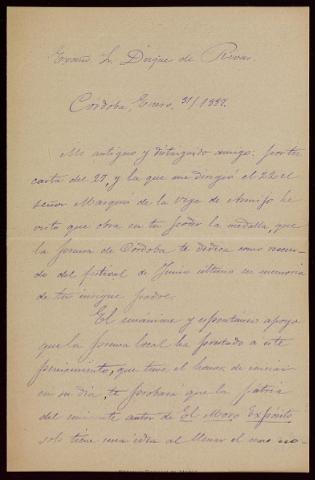 Excmo. Sr. Duque de Rivas.
Córdoba, Enero, 31/1889.
Mi antiguo y distinguido amigo: por tu
carta del 27, y la que me dirigió el 22 el
señor Marqués de la Vega de Armijo he
visto que obra en tu poder la medalla, que
la prensa de Córdoba te dedica como recuer-
do del festival de Junio último en memoria
de tu insigne padre.
El unánime y espontáneo apoyo
que la prensa local ha prestado a este
pensamiento, que tuve el honor de iniciar
en su día, te probará que la patria
del eminente autor de El Moro Expósito
solo tiene una idea al llenar el